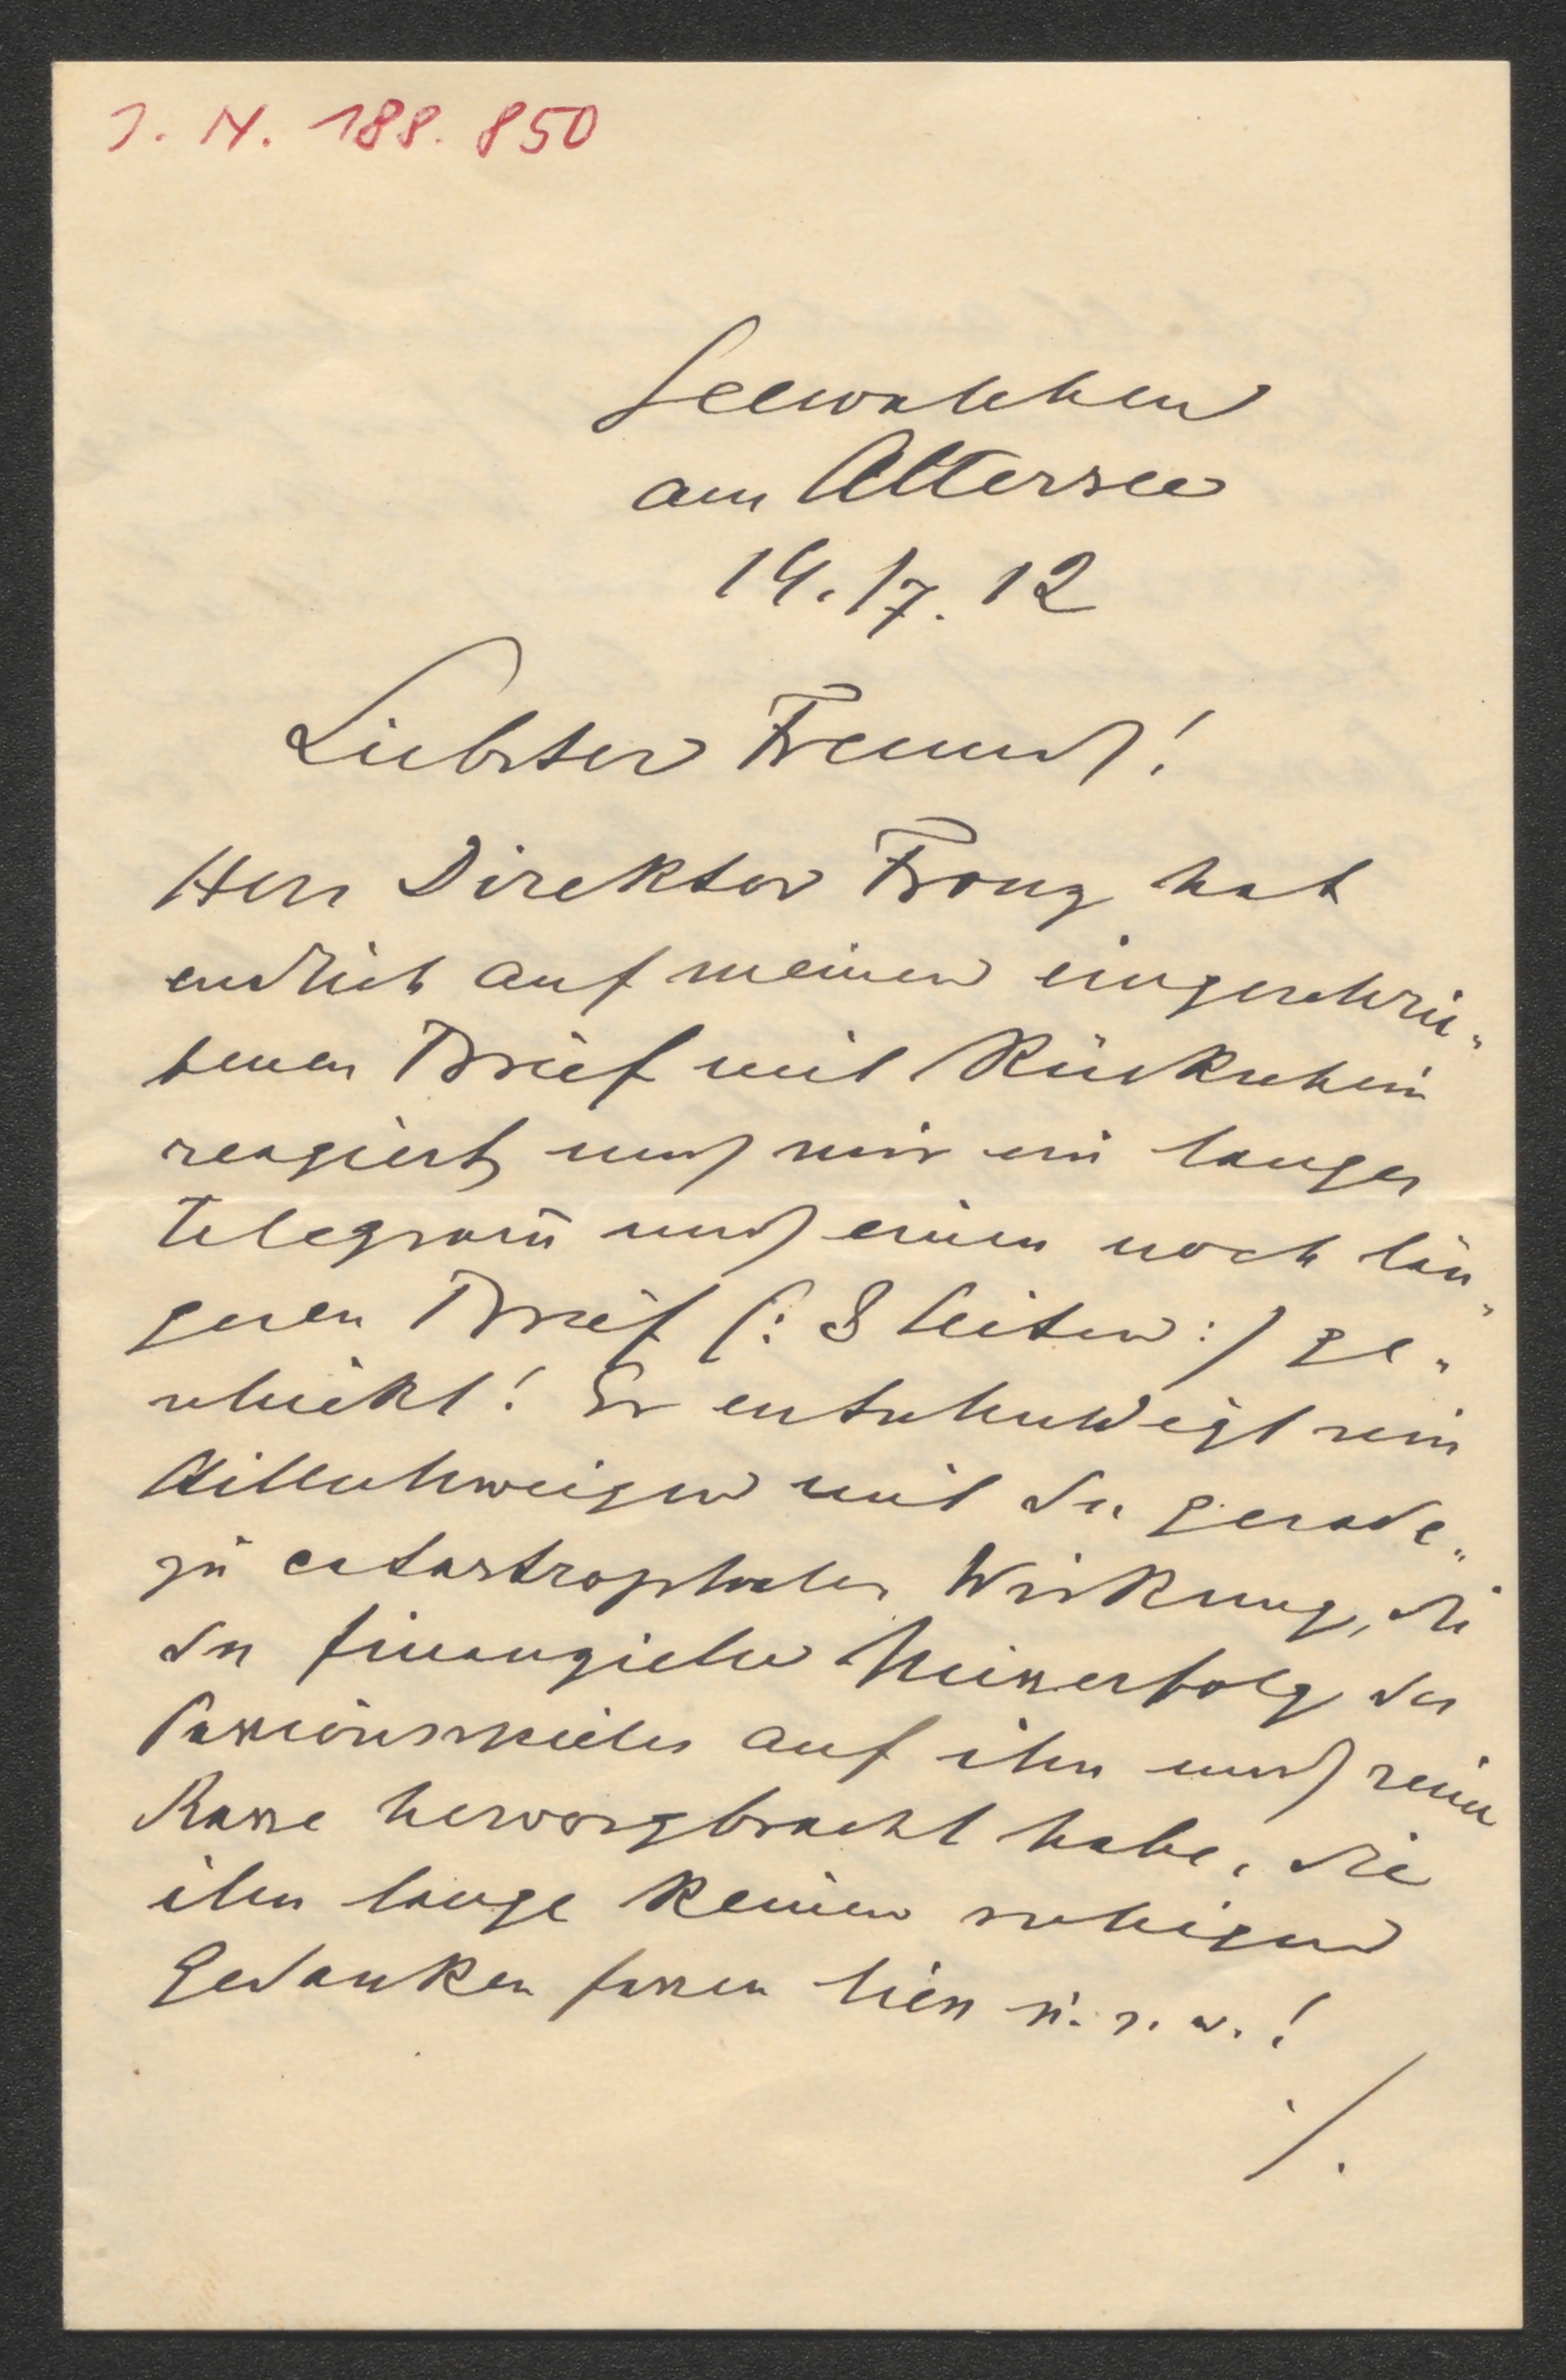 J. N. 188.850
Seewalchen
am Attersee
14./7. 12
Liebster Freund!
Herr Direktor Fronz hat
endlich auf meinen eingeschrie„
benen Brief mit Rückschein
reagiert, und mir ein langes
Telegram̄ und einen noch län„
geren Brief (: 8 Seiten :) ge„
schickt! Er entschuldigt sein
Stillschweigen mit der gerade„
zu catastrophalen Wirkung, die
der finanzielle Misserfolg des
Passionsspieles auf ihn und seine
Kasse hervorgebracht habe, die
ihn lange keinen ruhigen
Gedanken fassen liess u. s. w.!
./.